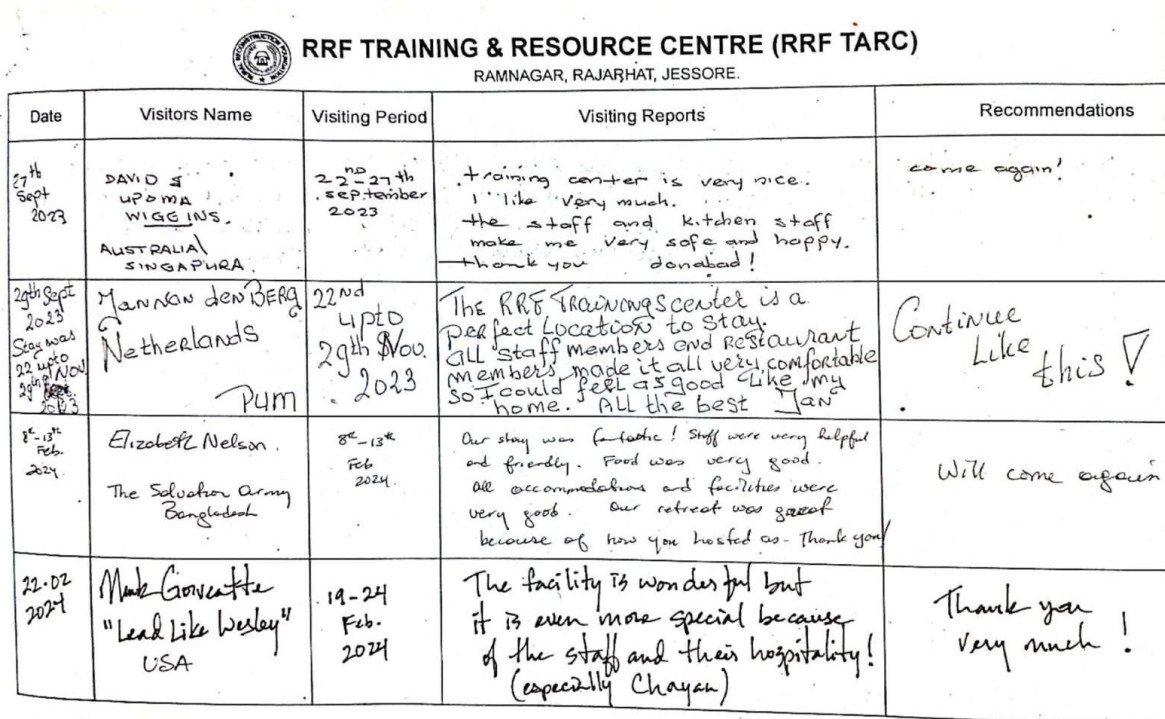 RRF TRAINING & RESOURCE CENTRE (RRF TARC)
RAMNAGAR, RAJARHAT, JESSORE.
Date Visitors Name Visiting Period Visiting Reports Recommendations
27th
Sept
2023
DAVID &
UPOMA
WIGGINS.
AUSTRALIA/
SINGAPURA.
22nd-27th
September
2023
training center is very nice.
I like very much.
the staff and kitchen staff
make me very safe and happy.
thank you donabad!
come again!
29th Sept
2023
Stay was
22 upto
29th Nov
2023
Jan van den BERG
Netherlands
Pum
22nd
upto
29th Nov.
2023
The RRF Trainingscenter is a
perfect Location to stay.
all staff members and Restaurant
members made it all very comfortable
so I could feel as good like my
home. All the best Jan
Continue
Like
this!
8th-13th
Feb.
2024.
Elizabeth Nelson.
The Salvation Army
Bangladesh
8th-13th
Feb
2024.
Our stay was fantastic! Staff were very helpful
and friendly. Food was very good.
all accommodations and facilities were
very good. Our retreat was great
because of how you hosted us - Thank you!
Will come again
22.02
2024
Mark
"Lead Like Wesley"
USA
19-24
Feb.
2024
The facility is wonderful but
it is even more special because
of the staff and their hospitality!
(especially Chayan)
Thank you
very much!